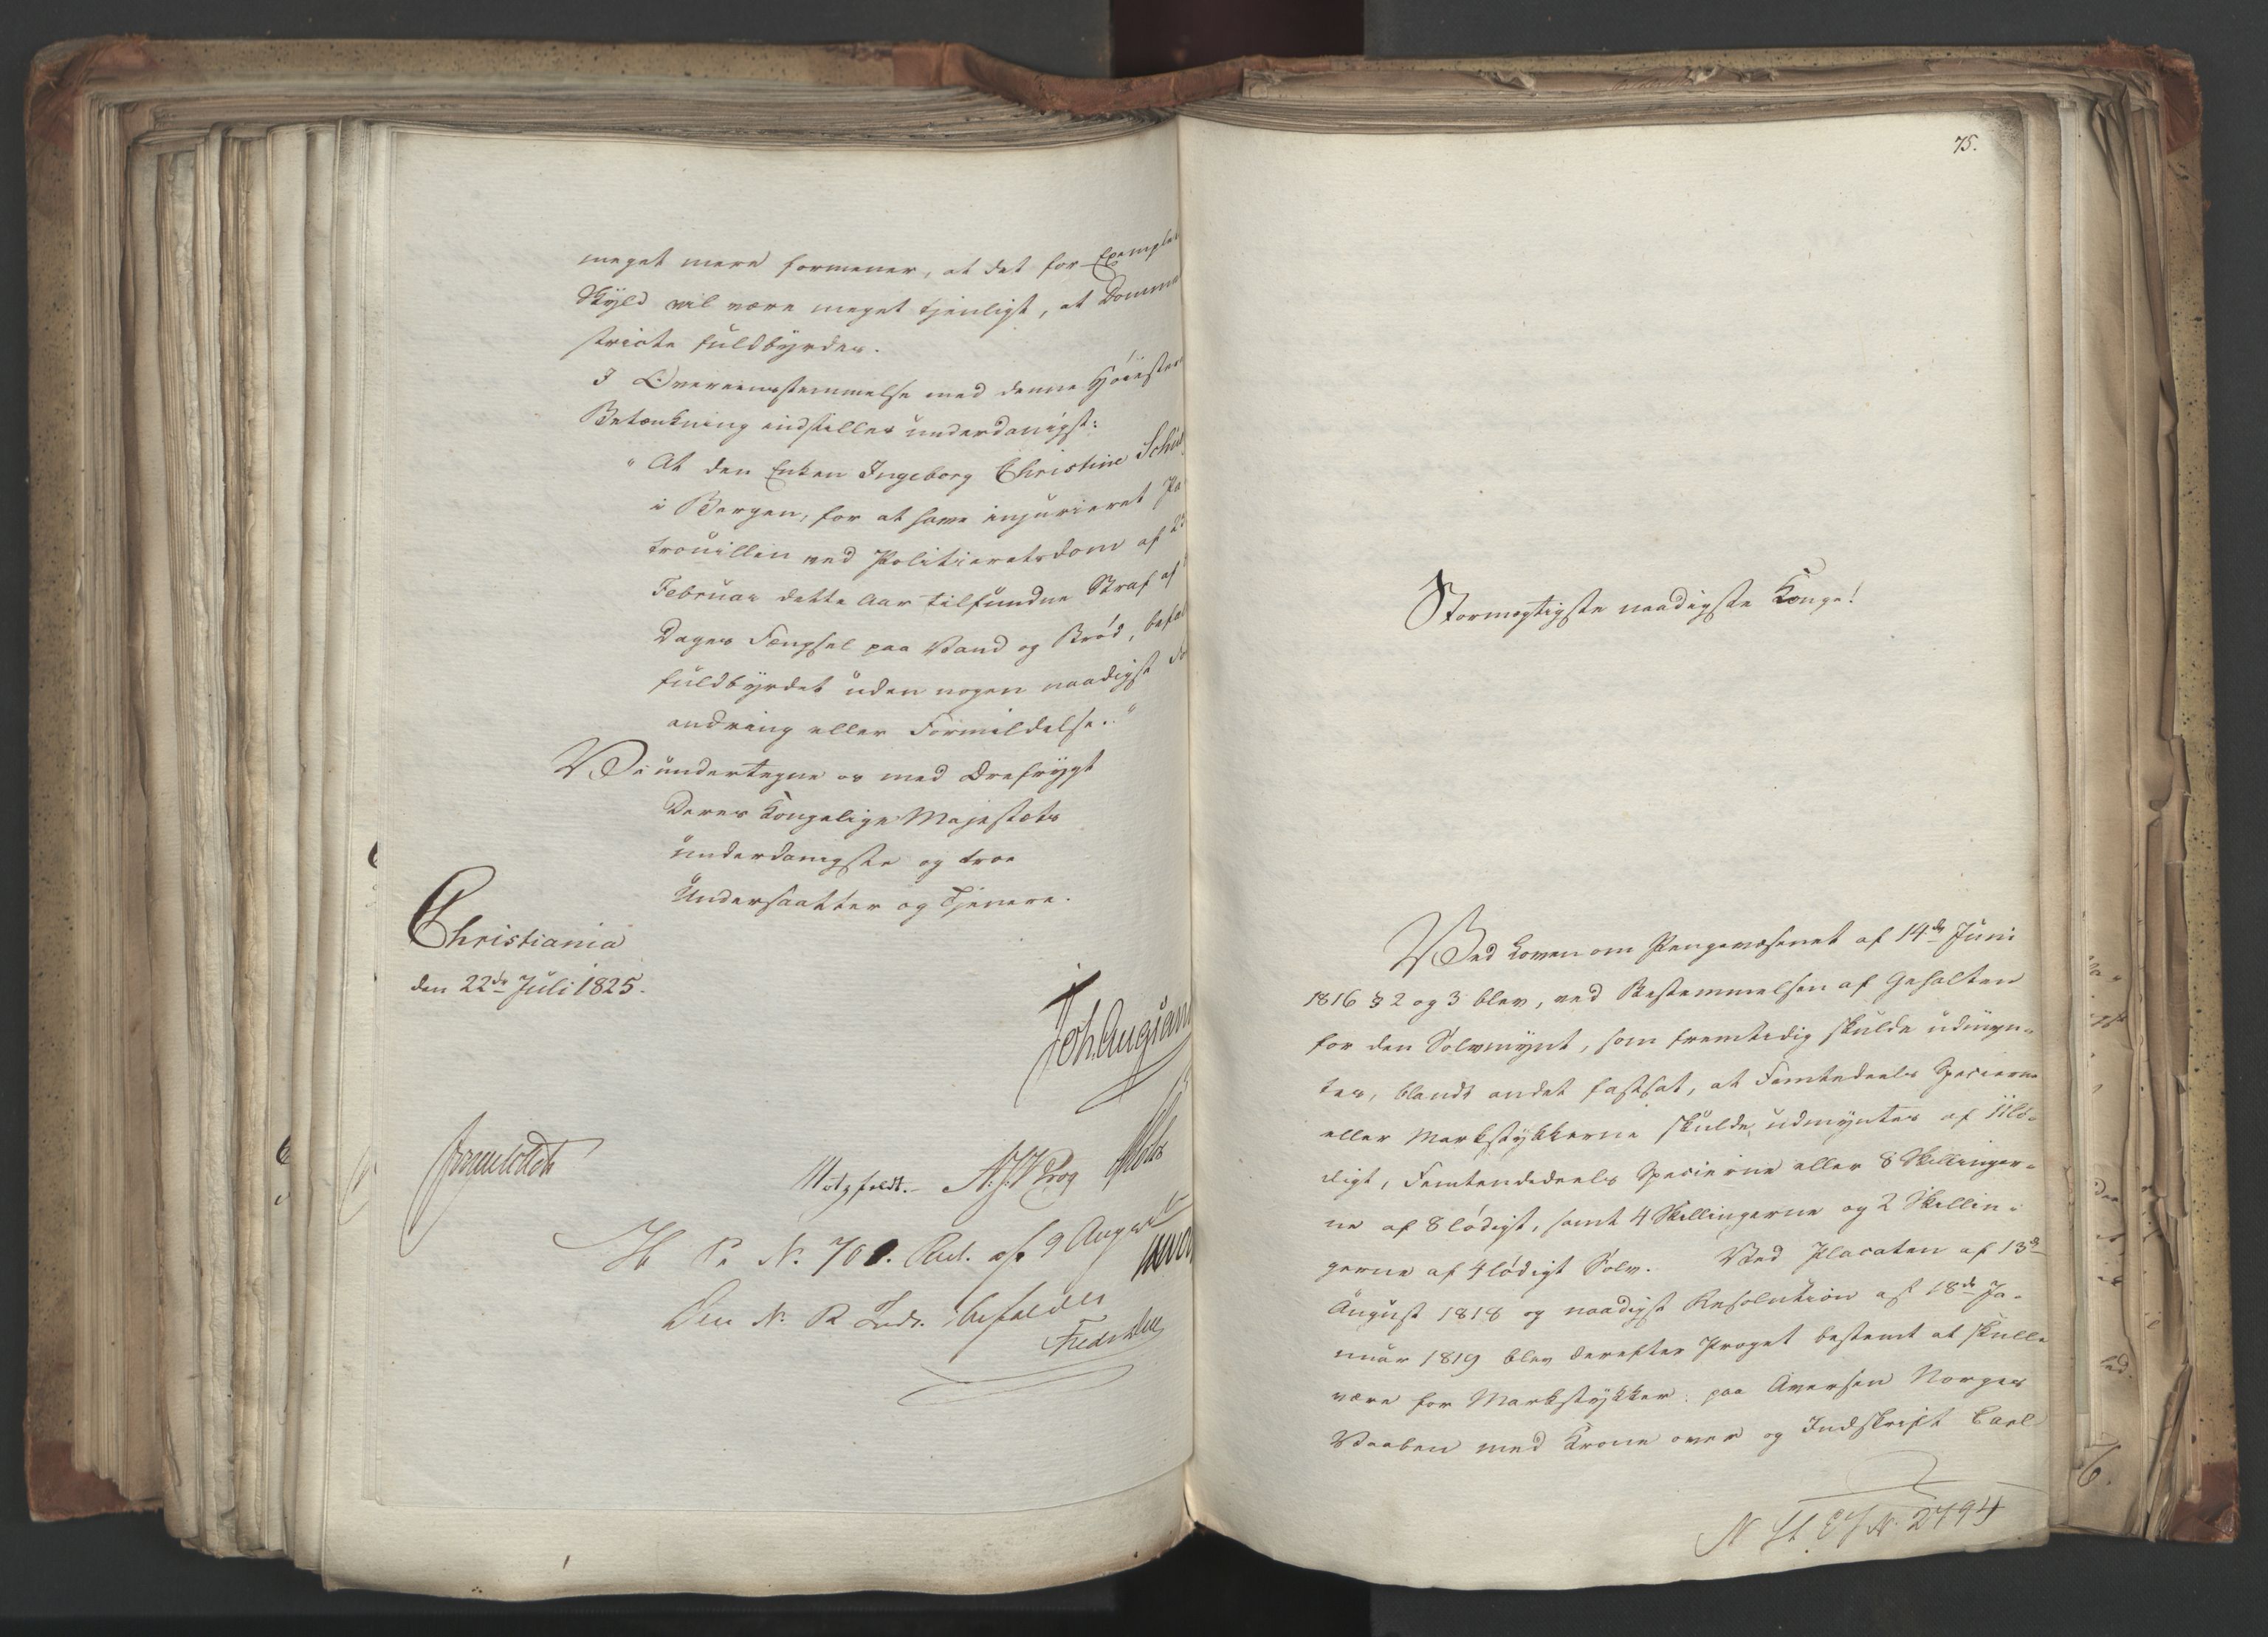 meget mere formener, at det for Exempels
Skyld vil være meget tjenligt, at Dommen
stricte fuldbyrdes.
I Overeensstemmelse med denne Høieste
Betænkning indstilles underdanigst:
"At den Enken Ingeborg Christine
i Bergen, for at have injurieret Pa
trouillen ved Politieretsdom af
Februar dette Aar tilfundne Straf af
Dages Fængsel paa Vand og Brød, befales
fuldbyrdet uden nogen naadigst For
andring eller Formildelse."
Vi undertegne os med Ærefrygt
Deres Kongelige Majestæts
underdanigste og troe
Undersaatter og Tjenere.
Christiania
den 22de Juli 1825.
Motzfeldt.
N.
9 August
befalder
75.
Stormægtigste naadigste Konge!
Ved Loven om Pengevæsenet af 14de Juni
1816 § 2 og 3 blev, ved Bestemmelsen af Gehalten
for den Sølvmynt, som fremtidig skulde udmyn-
tes, blandt andet fastsat, at Femtedeels Specierne
eller Markstykkerne skulde udmyntes af 11lø-
digt, Femtendedeels Specierne eller 8 Skillinger-
ne af 8 lødigt, samt 4 Skillingerne og 2 Skillin-
gerne af 4 lødigt Sølv. Ved Placaten af 13de
August 1818 og naadigst Resolution af 18de Ja-
nuar 1819 blev derefter Præget bestemt at skulle
være for Markstykker: paa Aversen Norges
Vaaben med Krone over og Indskrift Carl
N 2794